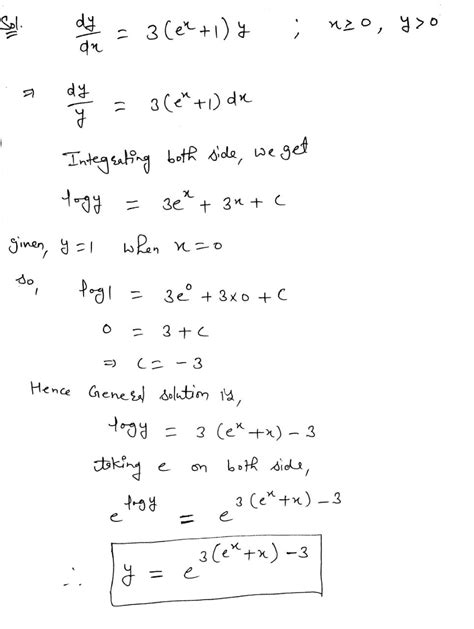 Sol. dy/dx = 3(e^x+1) y ; x≥0, y>0
⇒ dy/y = 3(e^x+1) dx
Integrating both side, we get
logy = 3e^x + 3x + C
given, y=1 when x=0
so, log1 = 3e^0 + 3×0 + C
0 = 3 + C
⇒ C = -3
Hence General solution is,
logy = 3(e^x+x) - 3
taking e on both side,
e^logy = e^3(e^x+x)-3
∴ y = e^3(e^x+x)-3